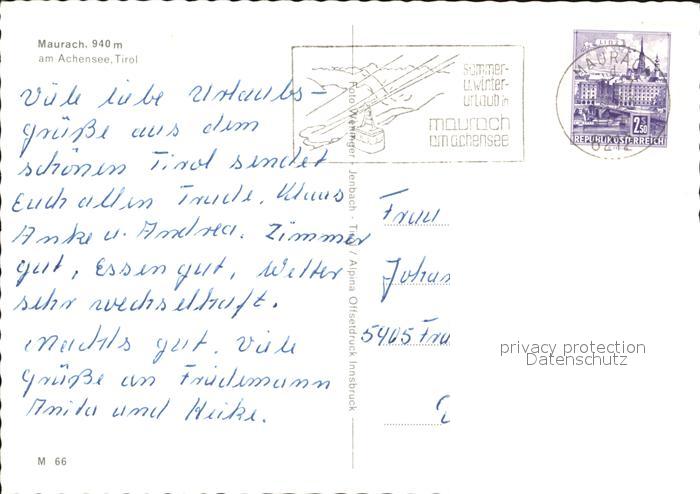 Maurach, 940 m
am Achensee, Tirol
Viele liebe Urlaubs-
grüße aus dem
schönen Tirol sendet
Euch allen Trude, Klaus
Anke u. Andrea. Zimmer
gut, Essen gut, Wetter
sehr wechselhaft.
Machts gut. Viele
Grüße an Friedemann
Anita und Heike.
M 66
Foto Weninger - Jenbach - Tirol / Alpina Offsetdruck Innsbruck
Sommer-
u. winter-
urlaub in
maurach
am achensee
MAURACH
6212
LINZ
2.50
REPUBLIK ÖSTERREICH
Frau
Johan
5405 Fra
privacy protection
Datenschutz